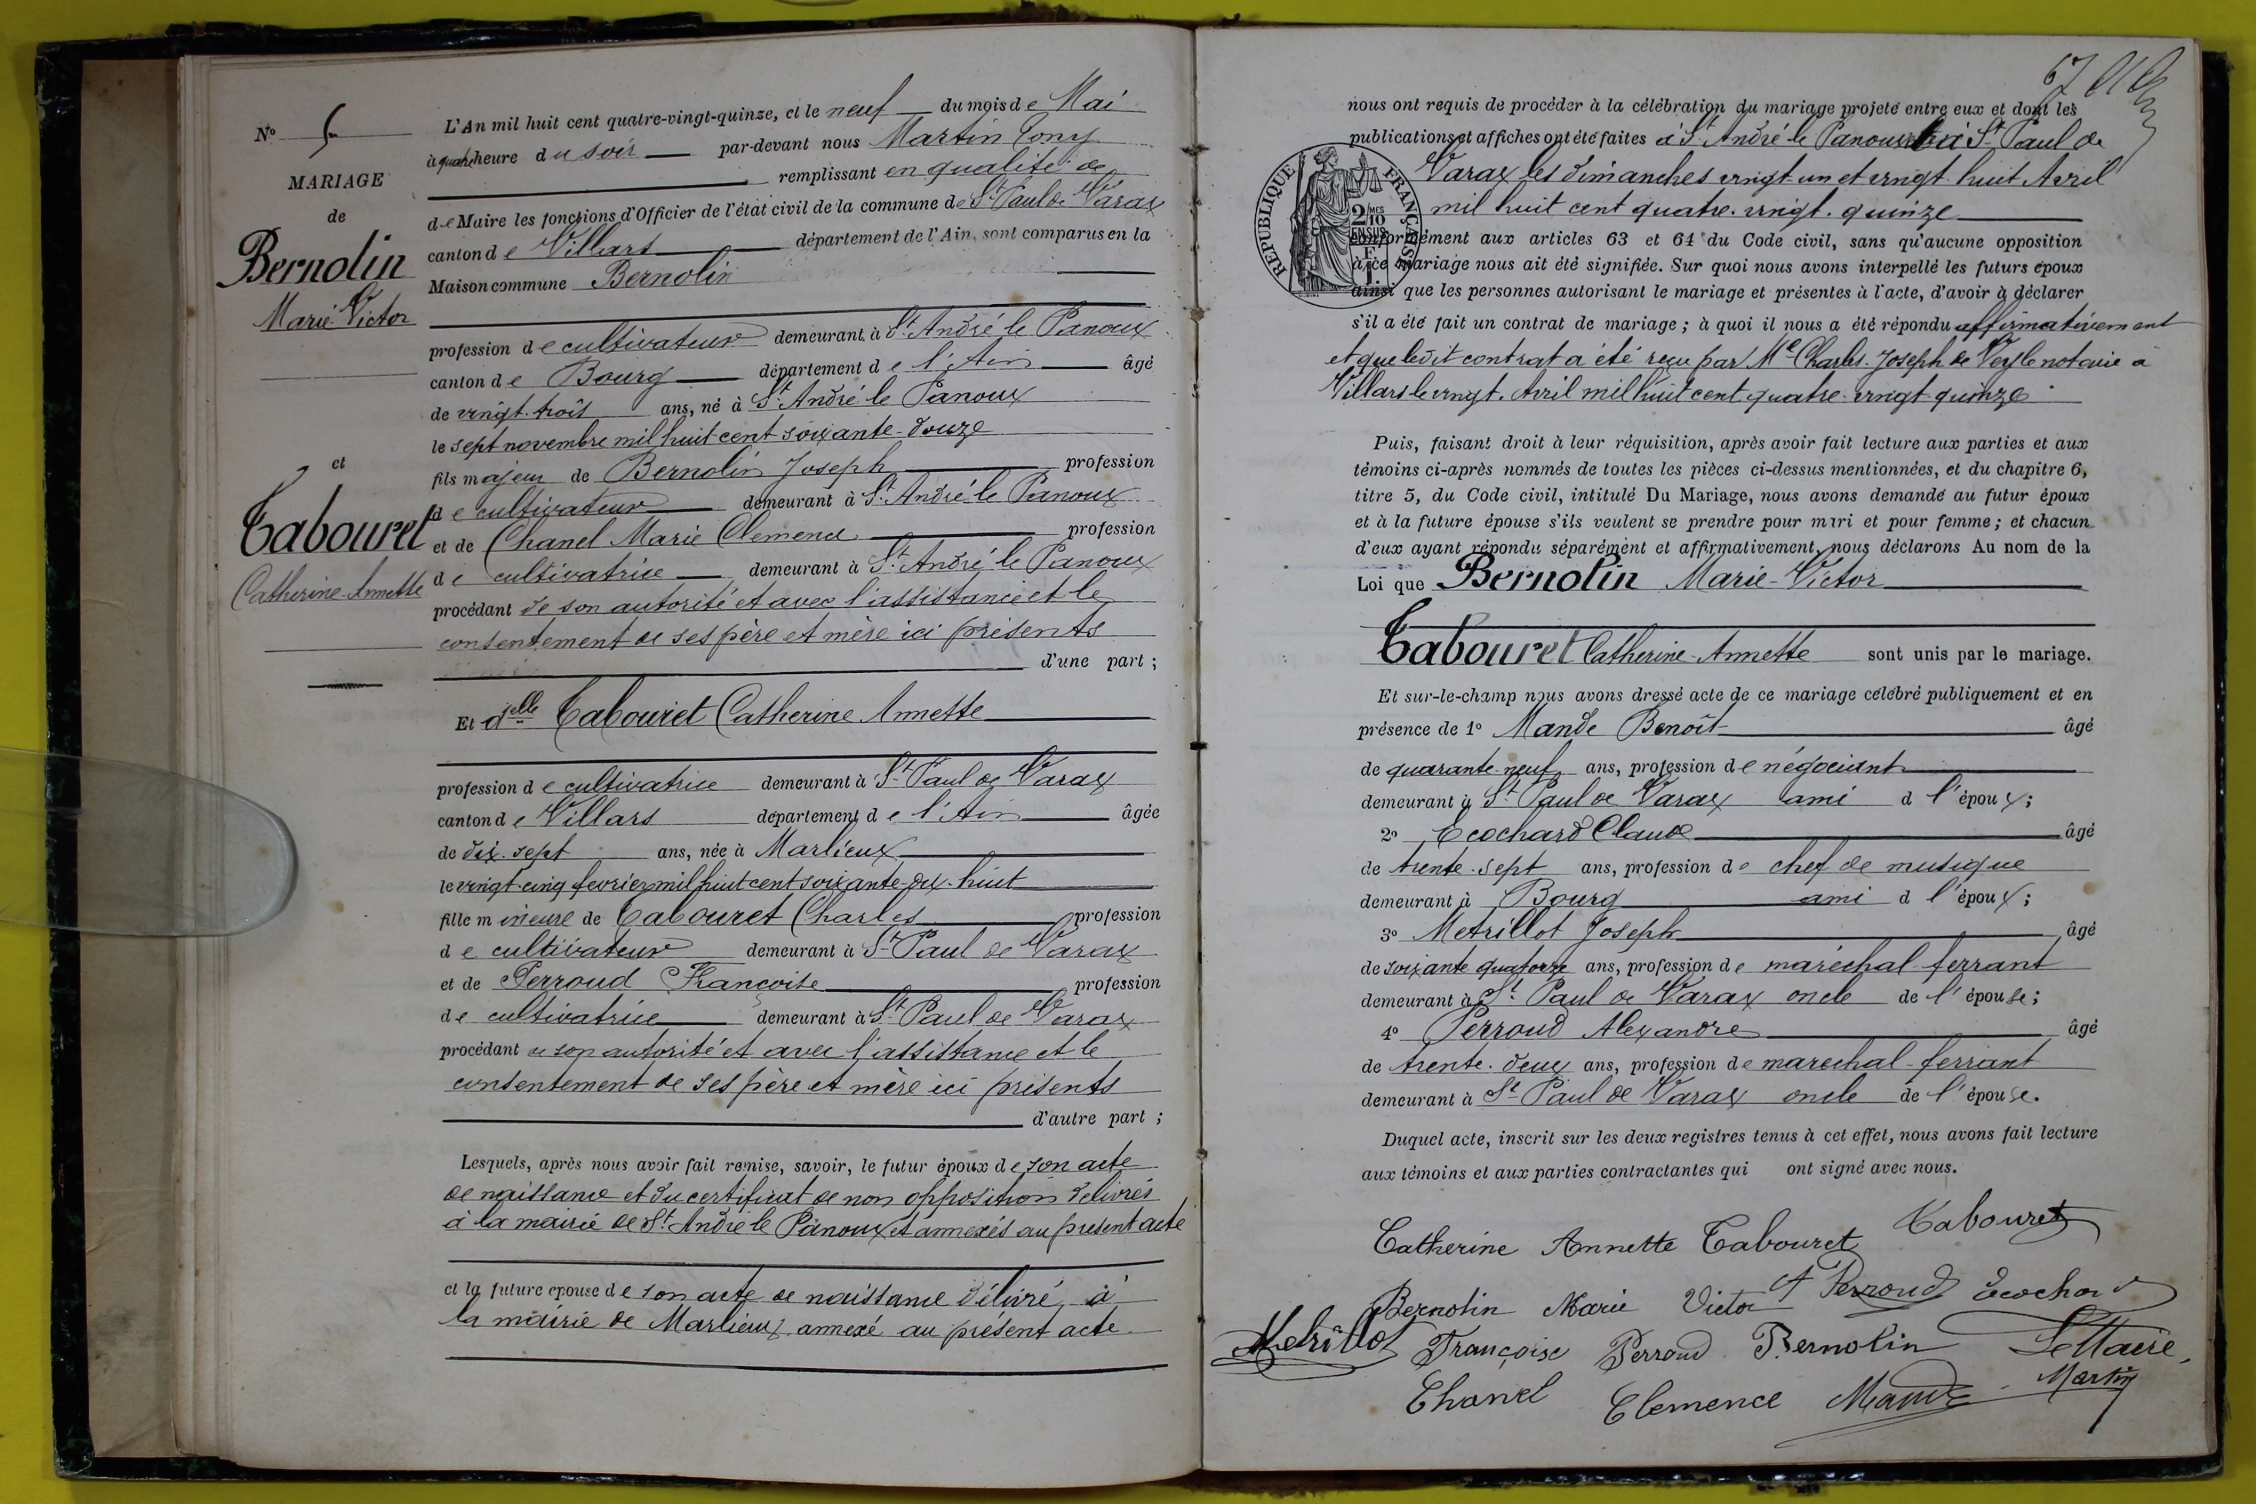 N° 5
MARIAGE
de
Bernolin
Marie Victor
et
Tabouret
Catherine Annette
L'An mil huit cent quatre-vingt-quinze, et le neuf du mois de Mai
à quatre heure du soir par-devant nous Martin Tony
remplissant en qualité de
de Maire les fonctions d'Officier de l'état civil de la commune de St Paul de Varax
canton de Villars département de l'Ain, sont comparus en la
Maison commune Bernolin
profession de cultivateur demeurant à St André le Panoux
canton de Bourg département de l'Ain âgé
de vingt-trois ans, né à St André le Panoux
le sept novembre mil huit cent soixante-douze
fils majeur de Bernolin Joseph profession
de cultivateur demeurant à St André le Panoux
et de Chanel Marie Clemence profession
de cultivatrice demeurant à St André le Panoux
procédant de son autorité et avec l'assistance et le
consentement de ses père et mère ici présents
d'une part ;
Et delle Tabouret Catherine Annette
profession de cultivatrice demeurant à St Paul de Varax
canton de Villars département de l'Ain âgée
de dix-sept ans, née à Marlieux
le vingt-cinq fevrier mil huit cent soixante-dix-huit
fille mineure de Tabouret Charles profession
de cultivateur demeurant à St Paul de Varax
et de Perroud Françoise profession
de cultivatrice demeurant à St Paul de Varax
procédant de son autorité et avec l'assistance et le
consentement de ses père et mère ici présents
d'autre part ;
Lesquels, après nous avoir fait remise, savoir, le futur époux de son acte
de naissance et du certificat de non opposition délivrés
à la mairie de St André le Panoux et annexés au present acte
et la future epouse de son acte de naissance délivré à
la mairie de Marlieux annexé au présent acte
67
nous ont requis de procéder à la célébration du mariage projeté entre eux et dont les
publications et affiches ont été faites à St André le Panoux et à St Paul de
Varax les dimanches vingt-un et vingt-huit Avril
mil huit cent quatre-vingt-quinze
RÉPUBLIQUE FRANÇAISE
2/10 EN SUS
conformément aux articles 63 et 64 du Code civil, sans qu'aucune opposition
à ce mariage nous ait été signifiée. Sur quoi nous avons interpellé les futurs époux
ainsi que les personnes autorisant le mariage et présentes à l'acte, d'avoir à déclarer
s'il a été fait un contrat de mariage ; à quoi il nous a été répondu affirmativement
et que ledit contrat a été reçu par Me Charles Joseph de Veyle notaire à
Villars le vingt Avril mil huit cent quatre-vingt-quinze
Puis, faisant droit à leur réquisition, après avoir fait lecture aux parties et aux
témoins ci-après nommés de toutes les pièces ci-dessus mentionnées, et du chapitre 6,
titre 5, du Code civil, intitulé Du Mariage, nous avons demandé au futur époux
et à la future épouse s'ils veulent se prendre pour mari et pour femme ; et chacun
d'eux ayant répondu séparément et affirmativement, nous déclarons Au nom de la
Loi que Bernolin Marie-Victor
Tabouret Catherine-Annette sont unis par le mariage.
Et sur-le-champ nous avons dressé acte de ce mariage célébré publiquement et en
présence de 1° Mande Benoît âgé
de quarante-neuf ans, profession de négociant
demeurant à St Paul de Varax ami d l'époux ;
2° Ecochard Claude âgé
de trente-sept ans, profession de chef de musique
demeurant à Bourg ami d l'époux ;
3° Metrillot Joseph âgé
de soixante quatorze ans, profession de maréchal-ferrant
demeurant à St Paul de Varax oncle de l'épouse ;
4° Perroud Alexandre âgé
de trente-deux ans, profession de marechal-ferrant
demeurant à St Paul de Varax oncle de l'épouse.
Duquel acte, inscrit sur les deux registres tenus à cet effet, nous avons fait lecture
aux témoins et aux parties contractantes qui ont signé avec nous.
Catherine Annette Tabouret Tabouret
Bernolin Marie Victor A Perroud Ecochard
Metrillot Françoise Perroud Bernolin Le Maire,
Chanel Clemence Mande Martin